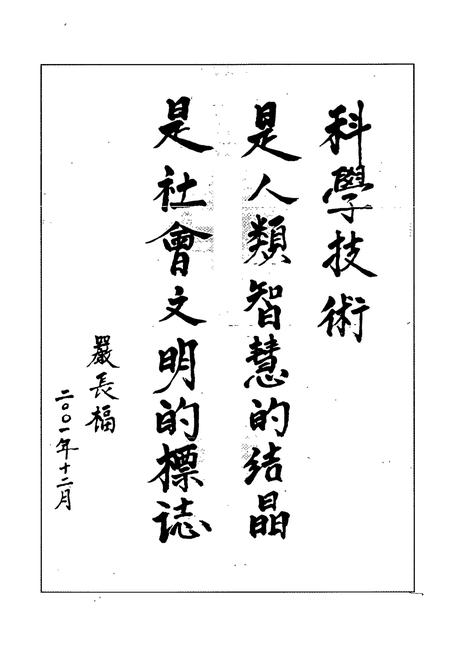 科學技術
是人類智慧的结晶
是社會文明的標誌
嚴長福
二〇〇一年十二月